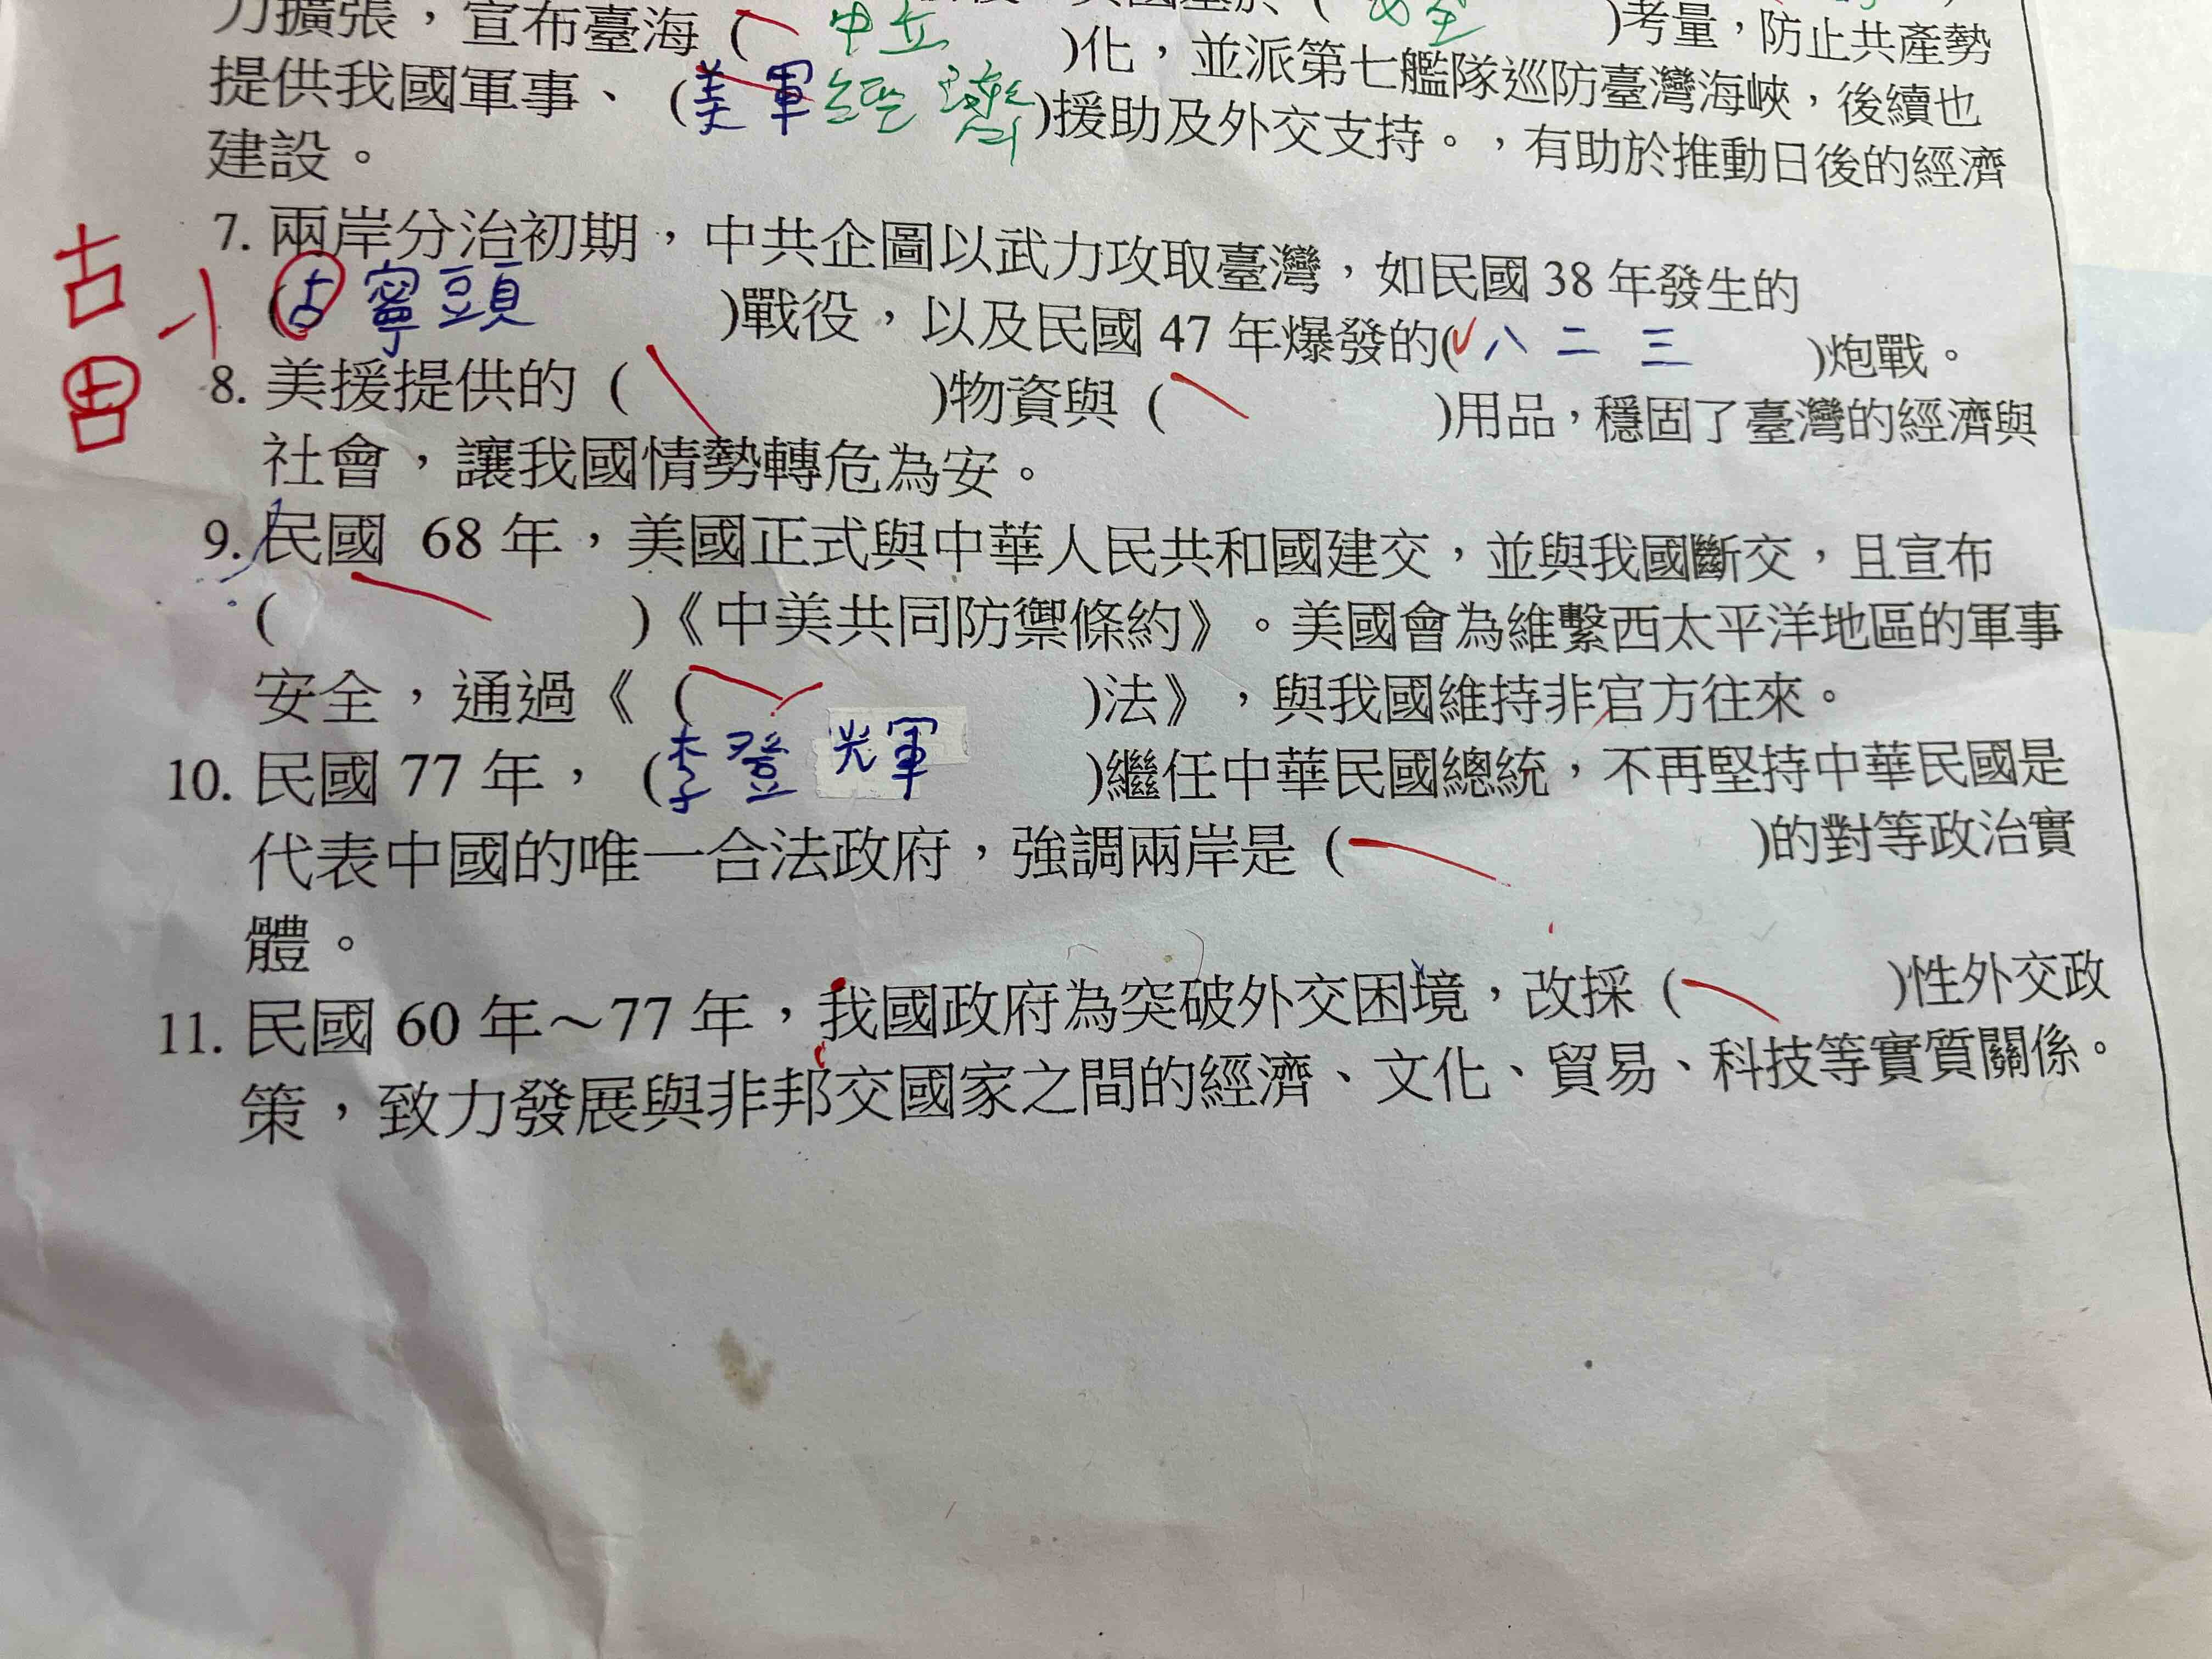 )考量，防止共產勢
力擴張，宣布臺海 ( 中立 )化，並派第七艦隊巡防臺灣海峽，後續也
提供我國軍事、 (美軍 經濟)援助及外交支持。，有助於推動日後的經濟
建設。
7. 兩岸分治初期，中共企圖以武力攻取臺灣，如民國 38 年發生的
古 (占寧頭 )戰役，以及民國 47 年爆發的( 八二三 )炮戰。
8. 美援提供的 ( )物資與 ( )用品，穩固了臺灣的經濟與
社會，讓我國情勢轉危為安。
9. 民國 68 年，美國正式與中華人民共和國建交，並與我國斷交，且宣布
( )《中美共同防禦條約》。美國會為維繫西太平洋地區的軍事
安全，通過《 ( )法》，與我國維持非官方往來。
10. 民國 77 年， (李登 光軍 )繼任中華民國總統，不再堅持中華民國是
代表中國的唯一合法政府，強調兩岸是 ( )的對等政治實
體。
11. 民國 60 年～77 年，我國政府為突破外交困境，改採 ( )性外交政
策，致力發展與非邦交國家之間的經濟、文化、貿易、科技等實質關係。